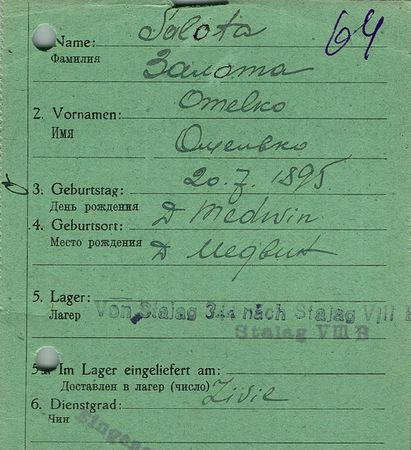 64
Name: Salota
Фамилия Залота
2. Vornamen: Omelko
Имя Омелько
3. Geburtstag: 20. 7. 1895
День рождения
4. Geburtsort: D Medwin
Место рождения Д Медвин
5. Lager: Von Stalag 344 nach Stalag VIII B
Лагер Stalag VIII B
5a Im Lager eingeliefert am:
Доставлен в лагер (число)
6. Dienstgrad: Zivil
Чин